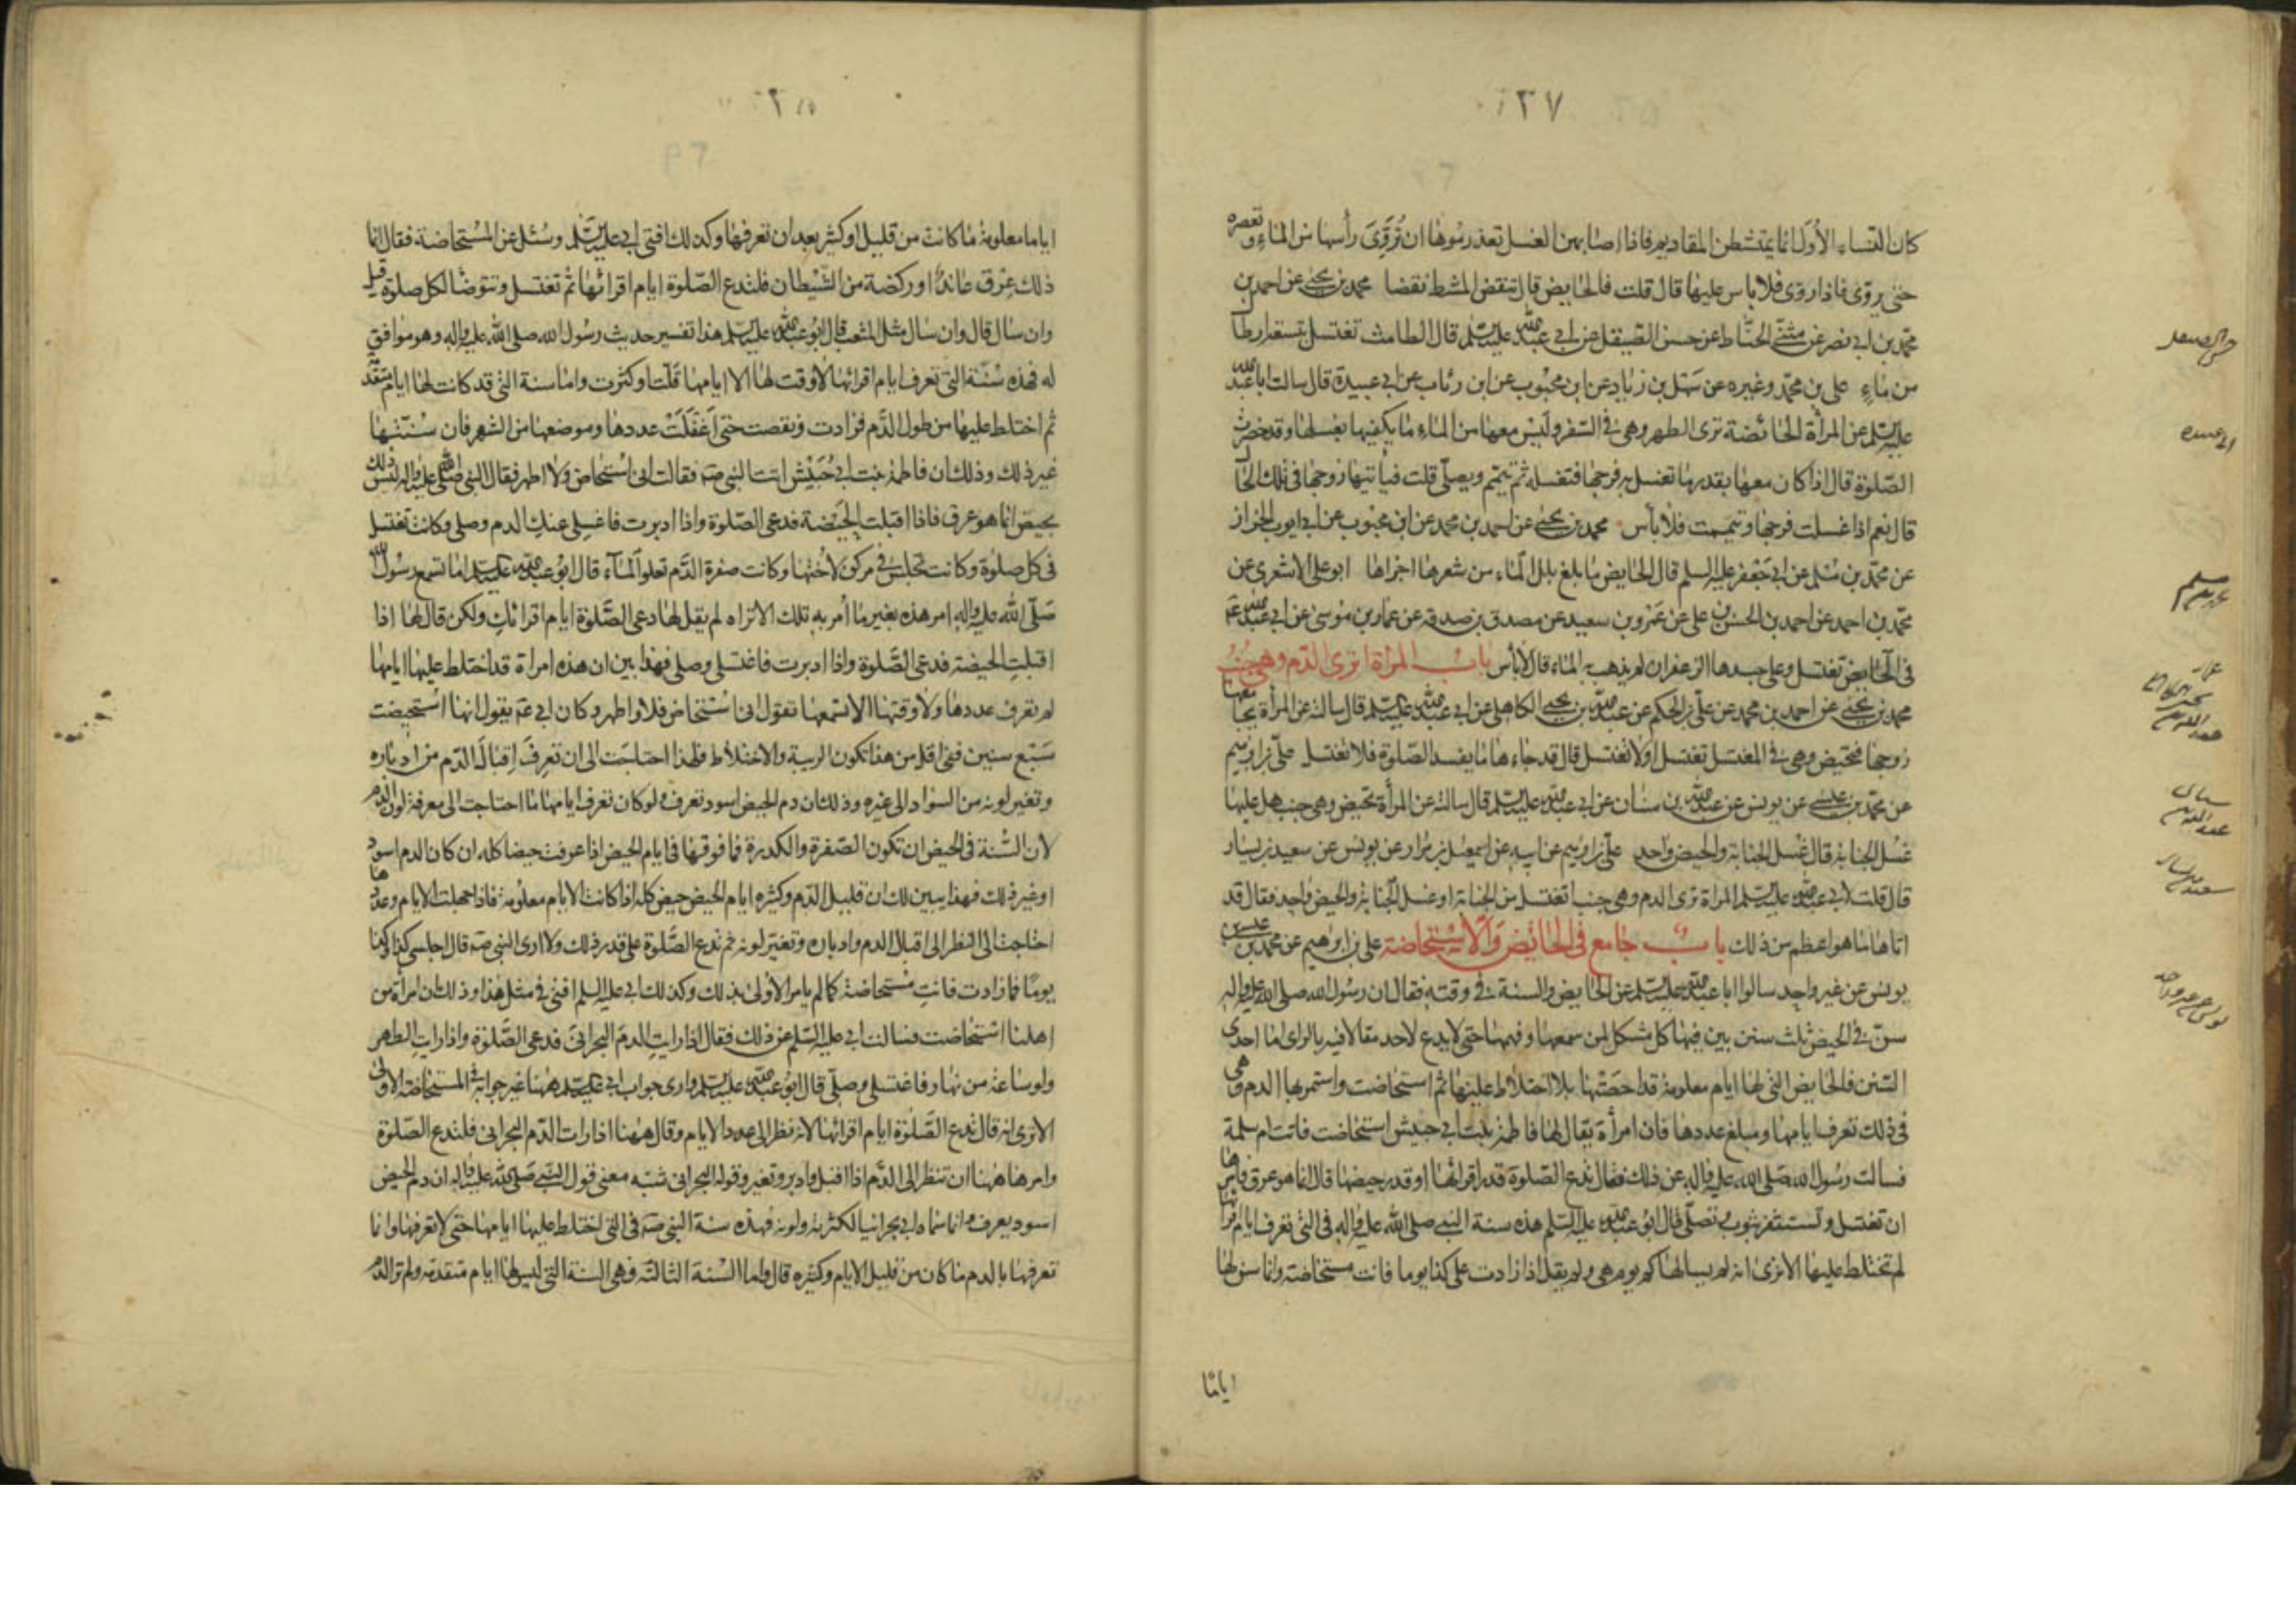 ٢٧
كان النساء الأول انما يمتشطن المقاديم فاذا اصابهن الغسل تعذر رسوها ان تُرَوِّىَ رأسها من الماء وتعصره
حتى يروّى فاذا روّى فلا باس عليها قال قلت فالحايض قال تنقض المشط نقضا محمد بن يحيى عن احمد بن
محمد بن ابى نصر عن مثنى الحنّاط عن حسن الصيقل عن ابى عبد الله عليه السلم قال الطامث تغتسل بتسعة ارطال
من ماءٍ على بن محمد وغيره عن سهل بن زياد عن ابن محبوب عن ابن رئاب عن ابى عبيدة قال سالت ابا عبد الله
عليه السلم عن المرأة الحائضة ترى الطهر وهى فى السفر وليس معها من الماء ما يكفيها لغسلها وقد حضرت
الصّلوة قال اذا كان معها بقدر ما تغسل به فرجها فتغسله ثم تتيمّم ويصلّى قلت فيأتيها زوجها فى تلك الحال
قال نعم اذا غسلت فرجها وتيممت فلا بأس محمد بن يحيى عن احمد بن محمد عن ابن محبوب عن ابى ايوب الخزاز
عن محمد بن مسلم عن ابى جعفر عليه السلم قال الحايض ما بلغ بلل الماء من شعرها اجزاها ابو على الاشعرى عن
محمد بن احمد عن احمد بن الحسن بن على عن عمرو بن سعيد عن مصدق بن صدقه عن عمار بن موسى عن ابى عبد الله عم
فى الحايض تغتسل وعلى جسدها الزعفران لم يذهب به الماء قال لابأس باب المراة ترى الدّم وهى جنب
محمد بن يحيى عن احمد بن محمد عن على بن الحكم عن عبد الله بن يحيى الكاهلى عن ابى عبد الله عليه السلم قال سالته عن المرأة يجامعها
زوجها فتحيض وهى فى المغتسل تغتسل اولا تغتسل قال قد جاءها ما يفسد الصّلوة فلا تغتسل على بن ابرهيم
عن محمد بن عيسى عن يونس عن عبد الله بن سنان عن ابى عبد الله عليه السلم قال سالته عن المرأة تحيض وهى جنب هل عليها
غسل الجنابة قال غسل الجنابة والحيض واحد على بن ابرهيم عن ابيه عن اسمعيل بن مرار عن يونس عن سعيد بن يسار
قال قلت لابى عبد الله عليه السلم المراة ترى الدم وهى جنب اتغتسل من الجنابة او غسل الجنابة والحيض واحد فقال قد
اتاها ما هو اعظم من ذلك باب جامع فى الحائض والاستحاضة على بن ابرهيم عن محمد بن عيسى عن
يونس عن غير واحد سالوا ابا عبد الله عليه السلم عن الحايض والسنة فى وقته فقال ان رسول الله صلى الله عليه واله
سنّ فى الحيض ثلث سنن بين فيها كل مشكل لمن سمعها وفهمها حتى لا يدع لاحد مقالا فيه بالراى اما احدى
السّنن فالحايض التى لها ايام معلومة قد احصتها بلا اختلاط عليها ثم استحاضت واستمر بها الدم وهى
فى ذلك تعرف ايامها ومبلغ عددها فان امرأة يقال لها فاطمة بنت ابى حبيش استحاضت فاتت ام سلمة
فسالت رسول الله صلى الله عليه واله عن ذلك فقال تدع الصلوة قدر اقرائها او قدر حيضها قال انما هو عرق فامرها
ان تغتسل وتستثفر بثوب وتصلّى قال ابو عبد الله عليه السلم هذه سنة النبى صلى الله عليه واله فى التى تعرف ايام اقرائها
لم تختلط عليها الا ترى انه لم يسالها كم يوم هى ولم يقل اذا زادت على كذا يوما فانت مستحاضة وانما سن لها
اياما
حسن الصيقل
ابى عبيده
محمد بن مسلم
سعيد بن يسار
يونس عن غير واحد
اياما معلومة ما كانت من قليل او كثير بعد ان تعرفها وكذلك افتى ابى عليه السلم وسئل عن المستحاضة فقال انما
ذلك عرق عاند او ركضة من الشّيطان فلتدع الصّلوة ايام اقرائها ثم تغتسل وتتوضّا لكل صلوة قيل
وان سال قال وان سال مثل المثعب قال ابو عبد الله عليه السلم هذا تفسير حديث رسول الله صلى الله عليه واله وهو موافق
له فهذه سُنّة التى تعرف ايام اقرائها لا وقت لها الا ايامها قَلّت او كثرت واما سنة التى قد كانت لها ايام متقدّمة
ثم اختلط عليها من طول الدّم فزادت ونقصت حتى اَغفَلَتْ عددها وموضعها من الشهر فان سُنّتها
غير ذلك وذلك ان فاطمة بنت ابى حُبَيْش اتت النبى صم فقالت انى استحاض ولا اطهر فقال النبى صلى الله عليه واله ليس ذلك
بحيض انما هو عرق فاذا اقبلت الحَيضة فدعى الصّلوة واذا ادبرت فاغسلى عنك الدم وصلى وكانت تغتسل
فى كل صلوة وكانت تجلس فى مركن لاختها وكانت صفرة الدّم تعلو الماء قال ابو عبد الله عليه السلم اما تسمع رسول الله
صلّى الله عليه واله امر هذه بغير ما أمر به تلك الا تراه لم يقل لها دعى الصّلوة ايام اقرائك ولكن قال لها اذا
اقبلت الحيضة فدعى الصّلوة واذا ادبرت فاغتسلى وصلى فهذا بين ان هذه امراة قد اختلط عليها ايامها
لم تعرف عددها ولا وقتها الا تسمعها تقول انى استحاض فلا اطهر وكان ابى عم يقول انها استحيضت
سَبْع سنين ففى اقل من هذا تكون الريبة والاختلاط فلهذا احتاجت الى ان تعرف اقبال الدّم من ادباره
وتغير لونه من السواد الى غيره وذلك ان دم الحيض اسود تعرف ولو كان تعرف ايامها ما احتاجت الى معرفة لون الدم
لان السّنة فى الحيض ان تكون الصّفرة والكدرة فما فوقها فى ايام الحيض اذا عرفت حيضا كله ان كان الدم اسود
او غير ذلك فهذا يبين لك ان قليل الدّم وكثيره ايام الحيض حيض كله اذا كانت الايام معلومة فاذا جهلت الايام وعددها
احتاجت الى النظر الى اقبال الدم وادباره وتغير لونه ثم تدع الصّلوة على قدر ذلك ولا ارى النبى صم قال اجلسى كذا وكذا
يومًا فما زادت فانت مستحاضة كما لم يامر الاولى بذلك وكذلك ابى عليه السلم افتى فى مثل هذا وذلك ان امرأة من
اهلنا استحاضت فسالت ابى عليه السلم عن ذلك فقال اذا رايت الدم البحرانى فدعى الصّلوة واذا رايت الطهر
ولو ساعة من نهار فاغتسلى وصلّى قال ابو عبد الله عليه السلم وارى جواب ابى عليه السلم ههنا غير جوابه فى المستحاضة الاولى
الا ترى انه قال تدع الصّلوة ايام اقرائها لانه نظر الى عدد الايام وقال ههنا اذا رات الدّم البحرانى فلتدع الصّلوة
وامرها ههنا ان تنظر الى الدّم اذا اقبل وادبر وتغير وقوله البحرانى شبه معنى قول النبى صلى الله عليه واله ان دم الحيض
اسود يعرف وانما سماه ابى بحرانيا لكثرته ولونه فهذه سنة النبى صم فى التى اختلط عليها ايامها حتى لا تعرفها وانما
تعرفها بالدم ما كان من قليل الايام وكثيره قال واما السّنة الثالثة فهى السنة التى ليس لها ايام متقدمة ولم تر الدّم